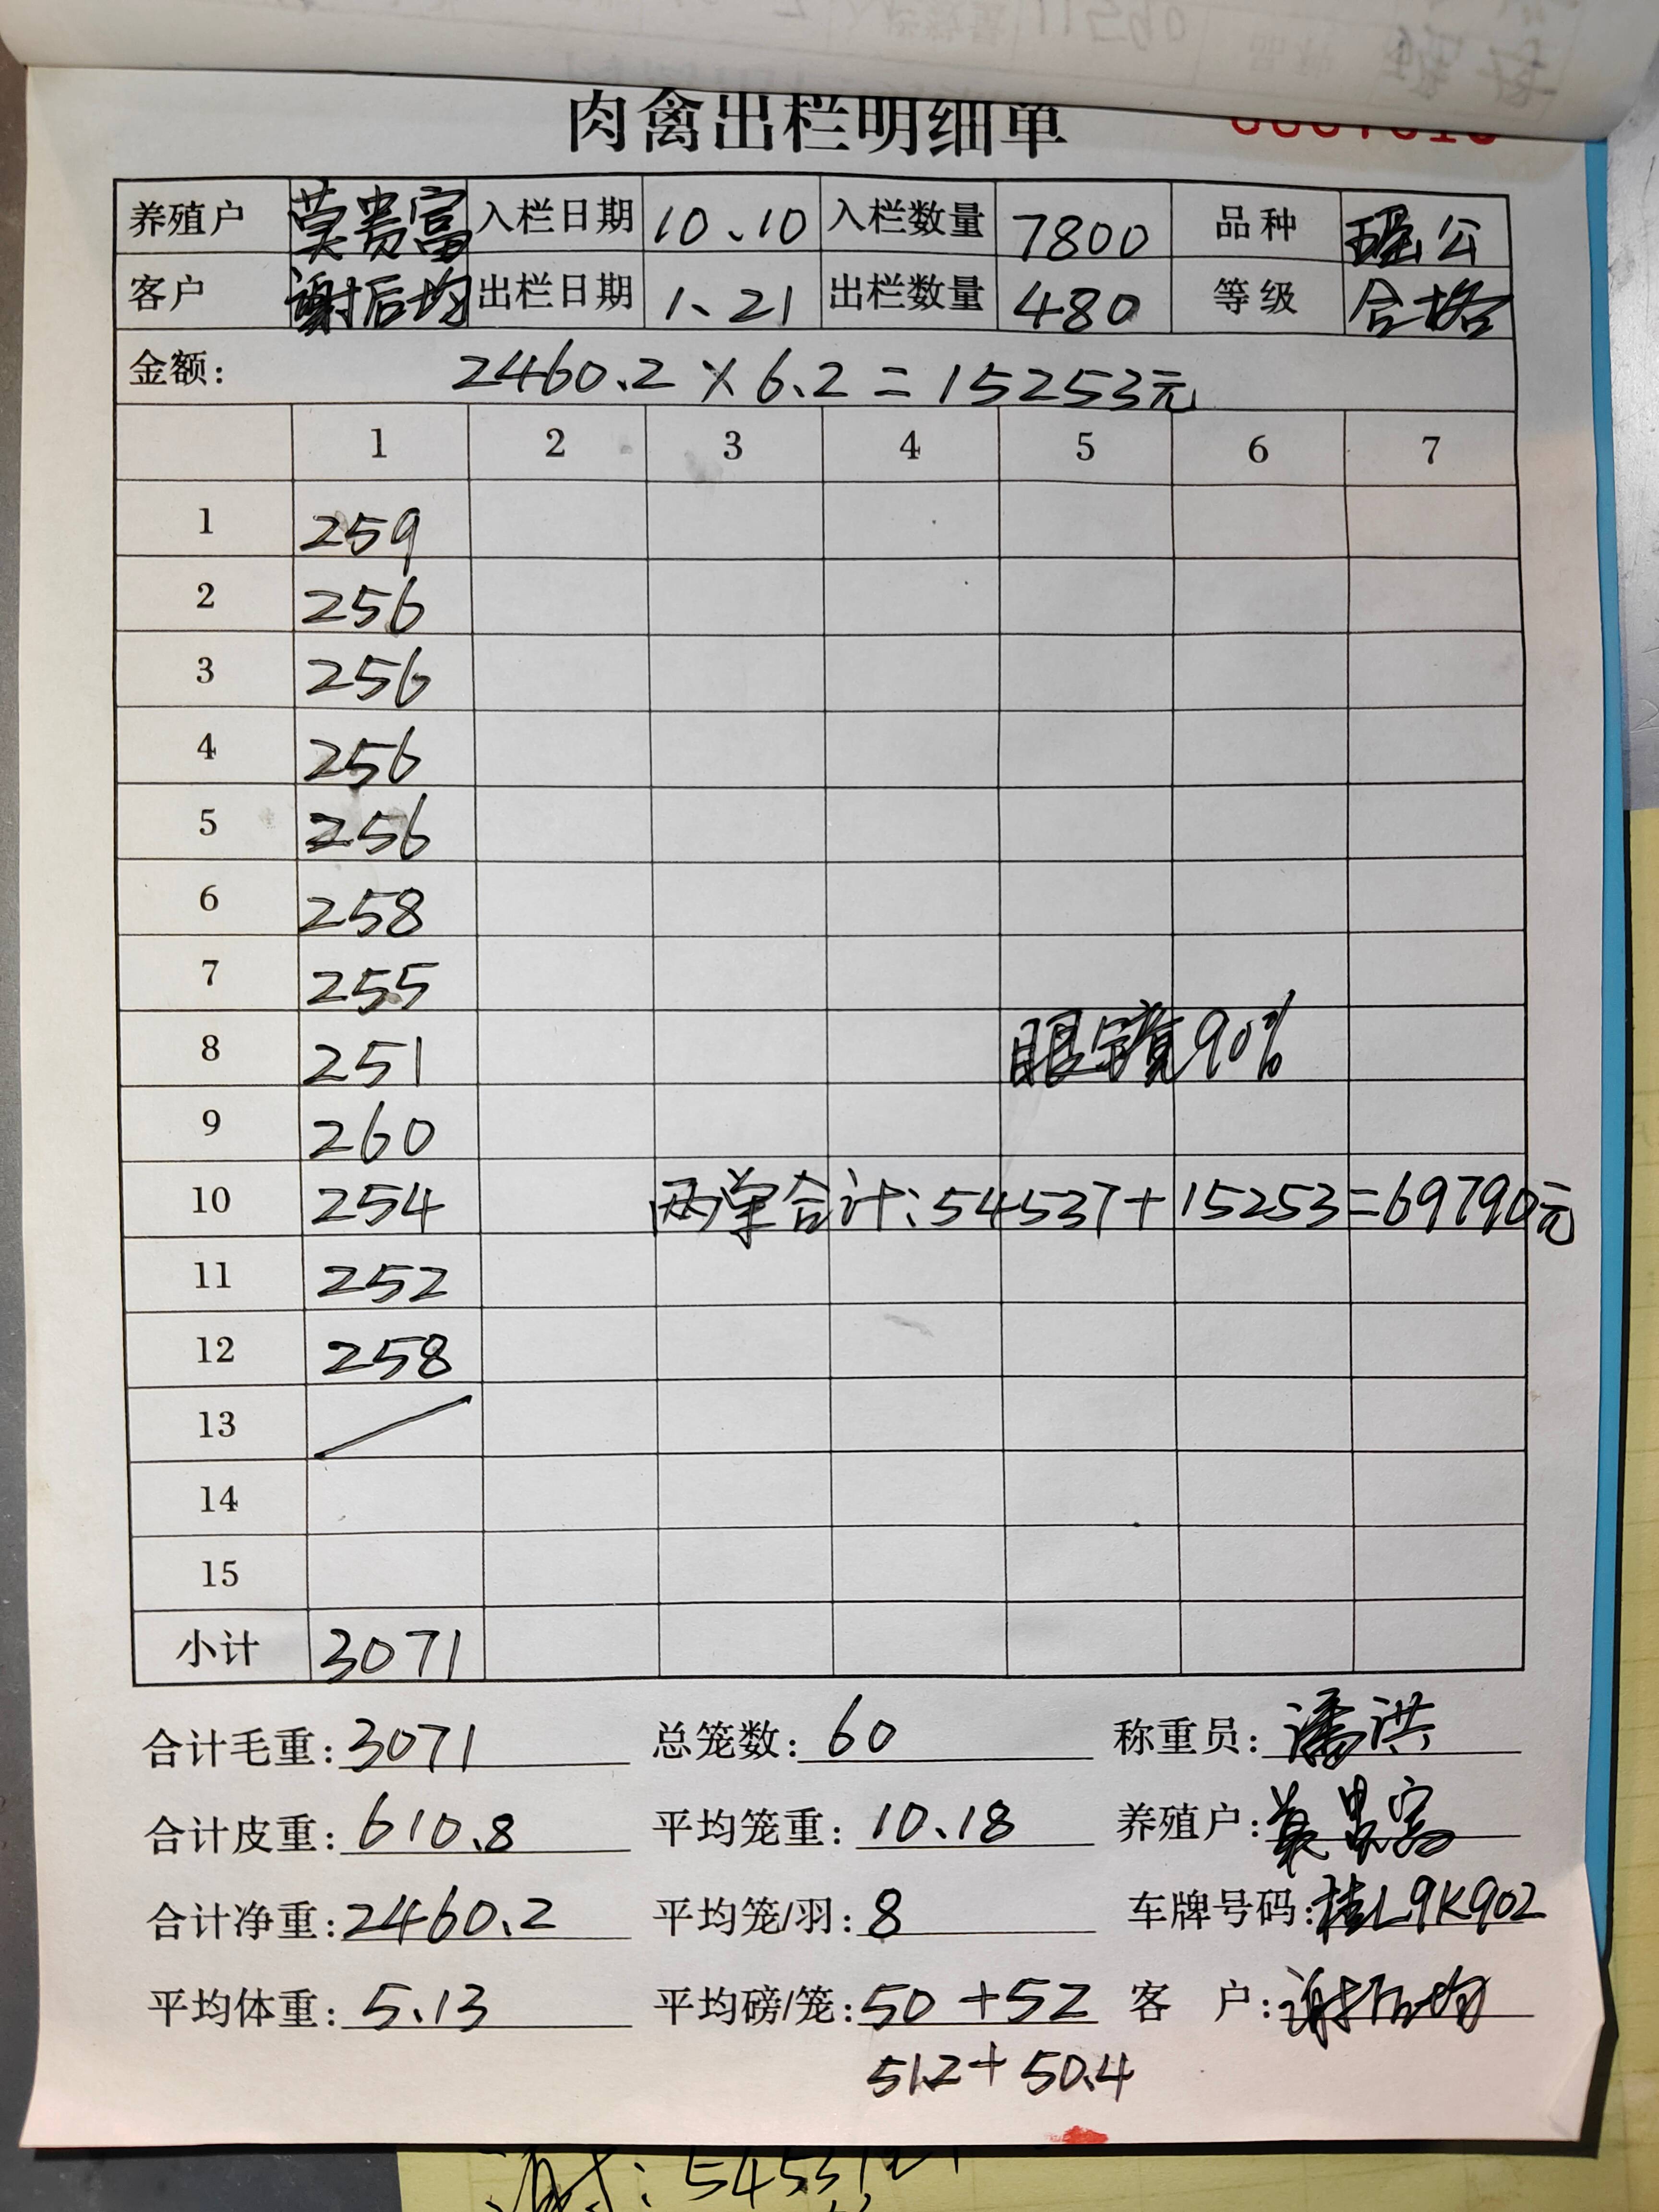 肉禽出栏明细单
养殖户 莫贵富 入栏日期 10.10 入栏数量 7800 品种 瑶公
客户 谢后均 出栏日期 1.21 出栏数量 480 等级 合格
金额: 2460.2×6.2=15253元
1 2 3 4 5 6 7
1 259
2 256
3 256
4 256
5 256
6 258
7 255
8 251 90%
9 260
10 254 两单合计:54537+15253=69790元
11 252
12 258
13
14
15
小计 3071
合计毛重:3071 总笼数:60 称重员:潘洪
合计皮重:610.8 平均笼重:10.18 养殖户:莫贵富
合计净重:2460.2 平均笼/羽:8 车牌号码:桂L9K902
平均体重:5.13 平均磅/笼:50+52 客 户:谢后均
51.2+50.4